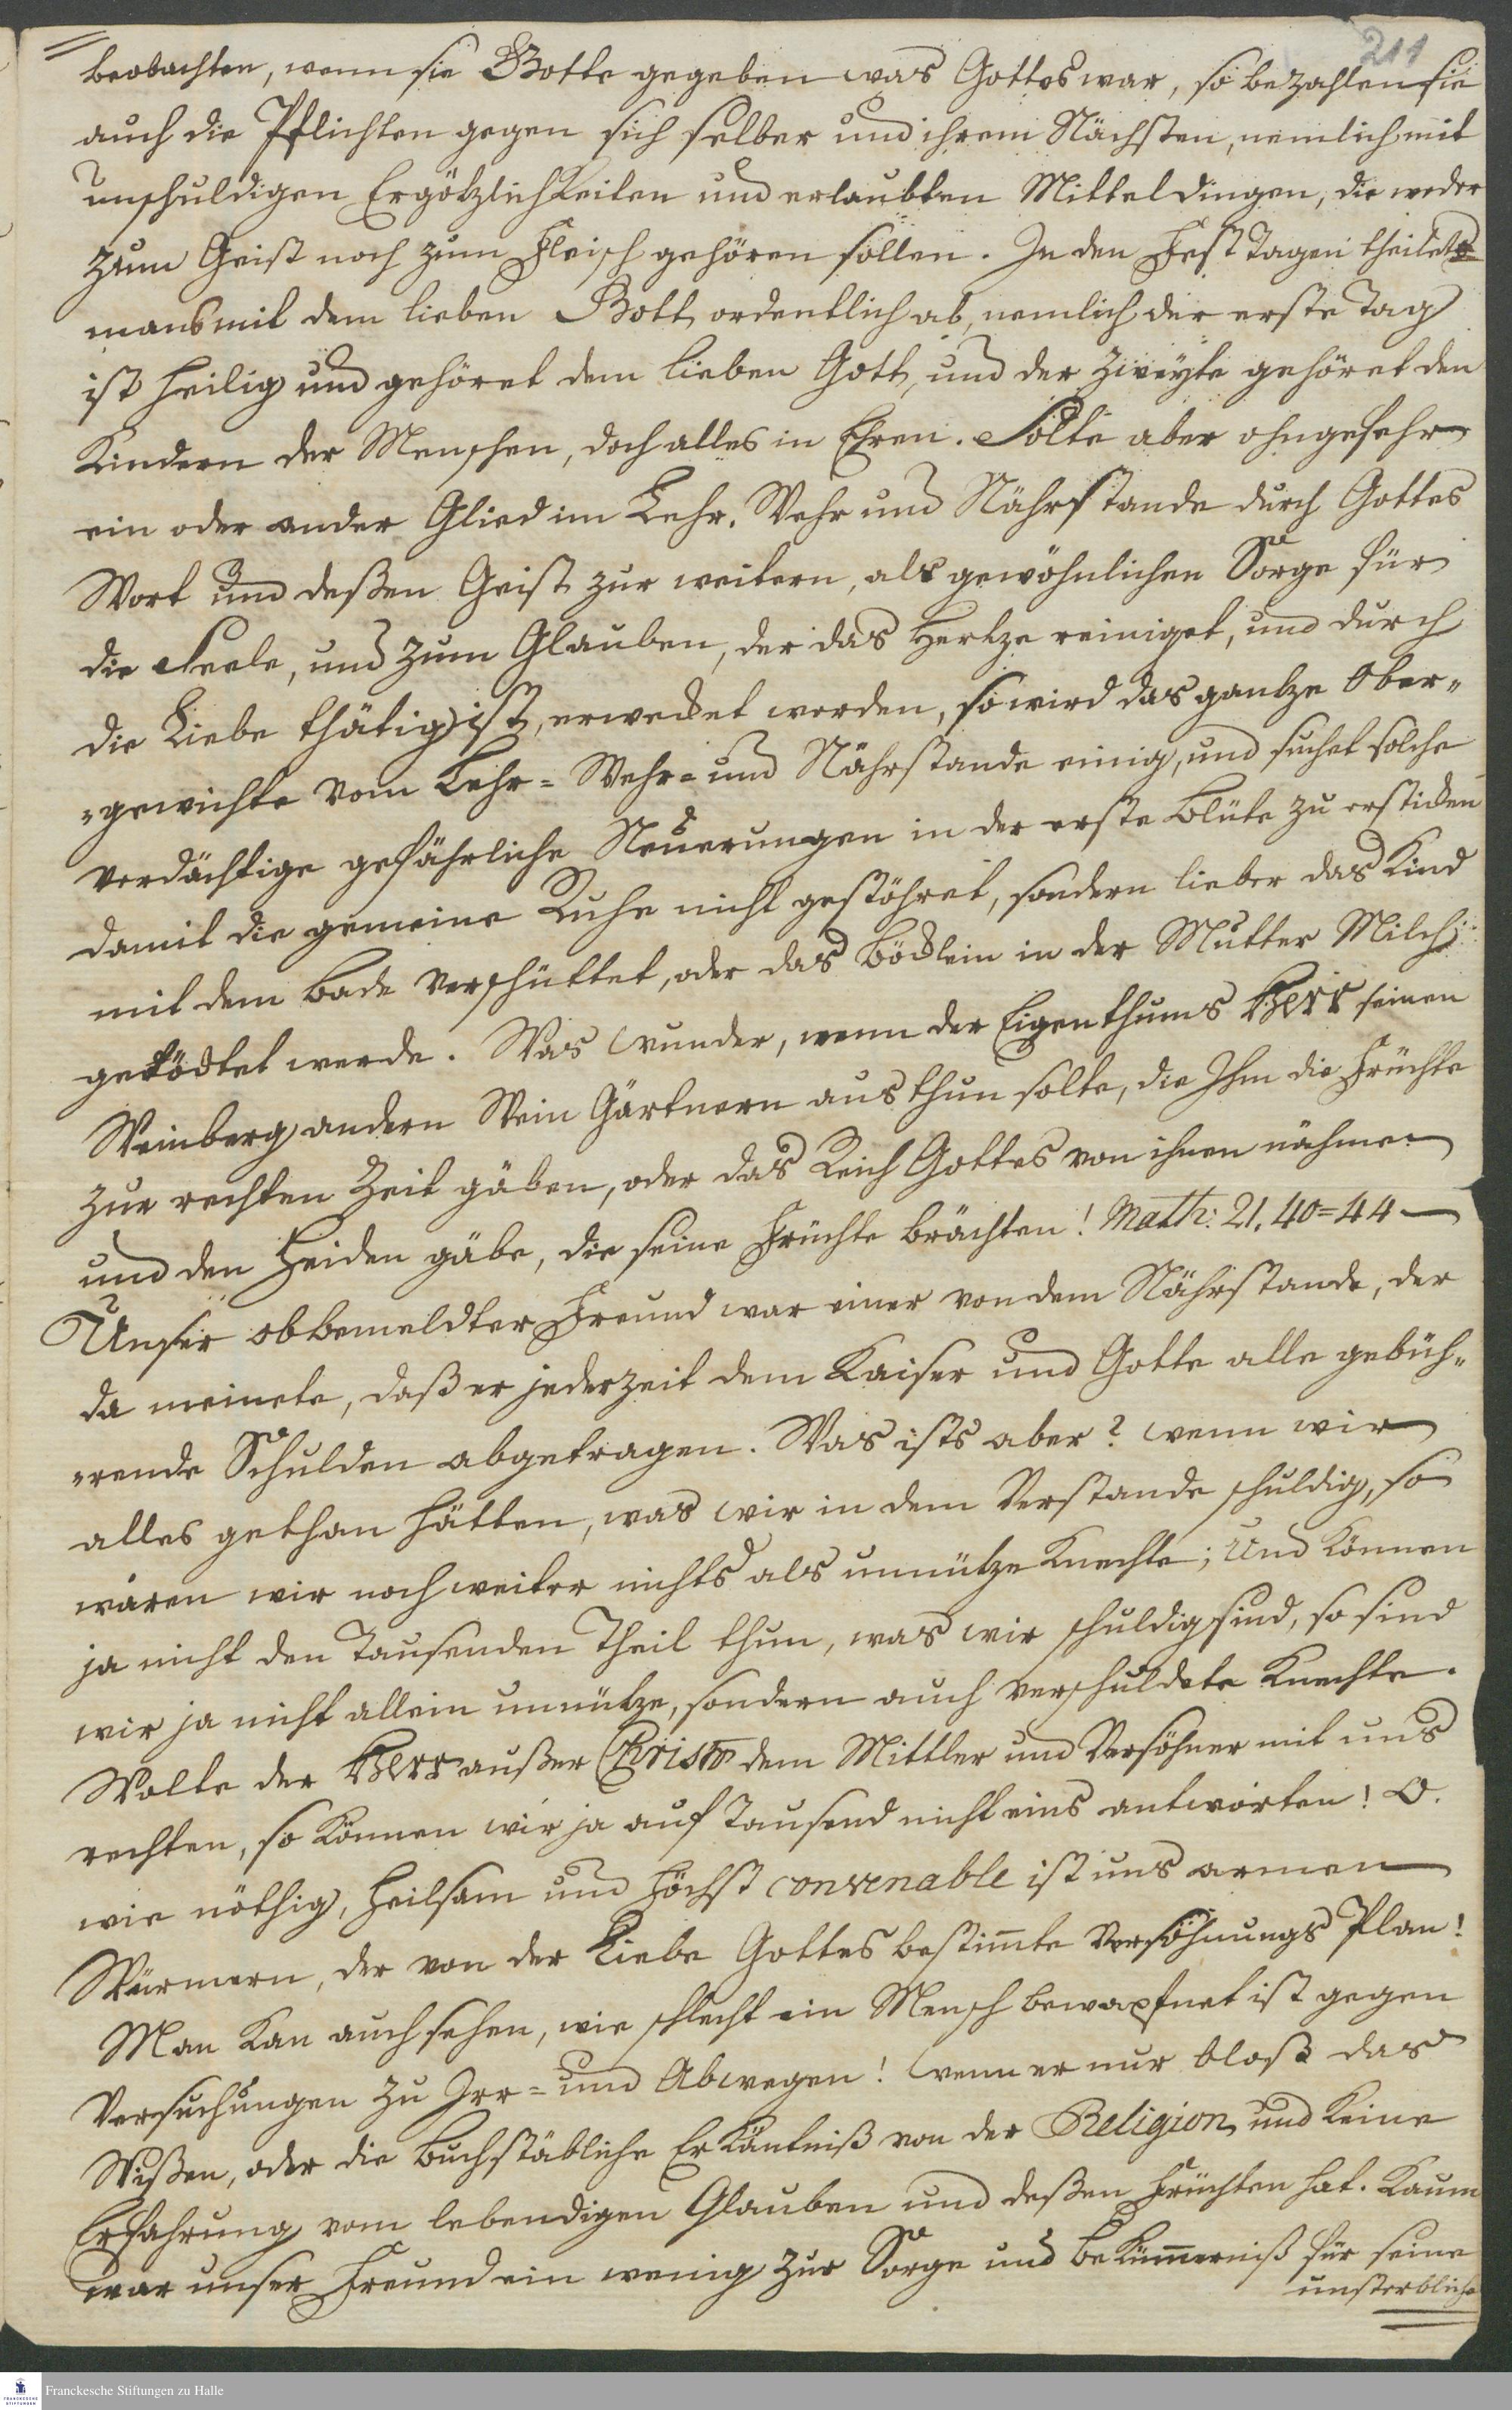 211
beobachten, wenn sie Gotte gegeben was Gottes war, so bezahlen sie
auch die Pflichten gegen sich selber und ihrem Nächsten, nemlich mit
unschuldigen Ergötzlichkeiten und erlaubten Mitteldingen, die weder
zum Geist noch zum Fleisch gehören sollen. In den Fest Tagen theilet
mans mit dem lieben Gott ordentlich ab, nemlich der erste Tag
ist heilig und gehöret dem lieben Gott, und der zweyte gehöret den
Kindern der Menschen, doch alles in Ehren. Solte aber ohngefehr
ein oder ander Glied im Lehr, Wehr und Nährstande durch Gottes
Wort und deßen Geist zur weitern, als gewöhnlichen Sorge für
die Seele, und zum Glauben, der das Hertze reiniget, und durch
die Liebe thätig ist, erwecket werden, so wird das gantze Ober-
gewichte vom Lehr- Wehr- und Nährstande einig, und suchet solche
verdächtige gefährliche Neuerungen in der erste Blüte zu ersticken
damit die gemeine Ruhe nicht gestöhret, sondern lieber das Kind
mit dem Bade verschüttet, oder das Böcklein in der Mutter Milch
getödtet werde. Was Wunder, wenn der Eigenthums Herr seinen
Weinberg andern Wein Gärtnern austhun solte, die Ihm die Früchte
zur rechten Zeit gäben, oder das Reich Gottes von ihnen nähme
und den Heiden gäbe, die seine Früchte brächten! Math: 21, 40=44 —
Unser obbemeldter Freund war einer von dem Nährstande, der
da meinete, daß er jederzeit dem Kaiser und Gotte alle gebüh-
rende Schulden abgetragen. Was ists aber? wenn wir
alles gethan hätten, was wir in dem Verstande schuldig, so
wären wir noch weiter nichts als unnütze Knechte; Und können
ja nicht den Tausenden Theil thun, was wir schuldig sind, so sind
wir ja nicht allein unnütze, sondern auch verschuldete Knechte.
Wolte der Herr außer Christo dem Mittler und Versöhner mit uns
rechten, so können wir ja auf Tausend nicht eins antworten! O.
wie nöthig, heilsam und höchst convenable ist uns armen
Würmern, der von der Liebe Gottes bestimte Versöhnungs Plan!
Man kan auch sehen, wie schlecht ein Mensch bewapfnet ist gegen
Versuchungen zu Irr- und Abwegen! wenn er nur bloß das
Wißen, oder die Buchstäbliche Erkäntniß von der Religion, und keine
Erfahrung vom lebendigen Glauben und deßen Früchten hat. Kaum
war unser Freund ein wenig zur Sorge und Bekümerniß für seine
unsterbliche
Franckesche Stiftungen zu Halle